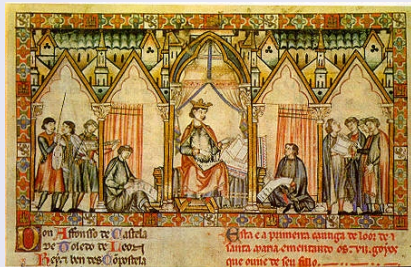 Don Affonsso de Castela
de Toledo de Leon
Rey e ben des Conpostela
Esta e a primeira cantiga de loor de
santa maria ementando os. vii. goyos
que ouue de seu fillo.